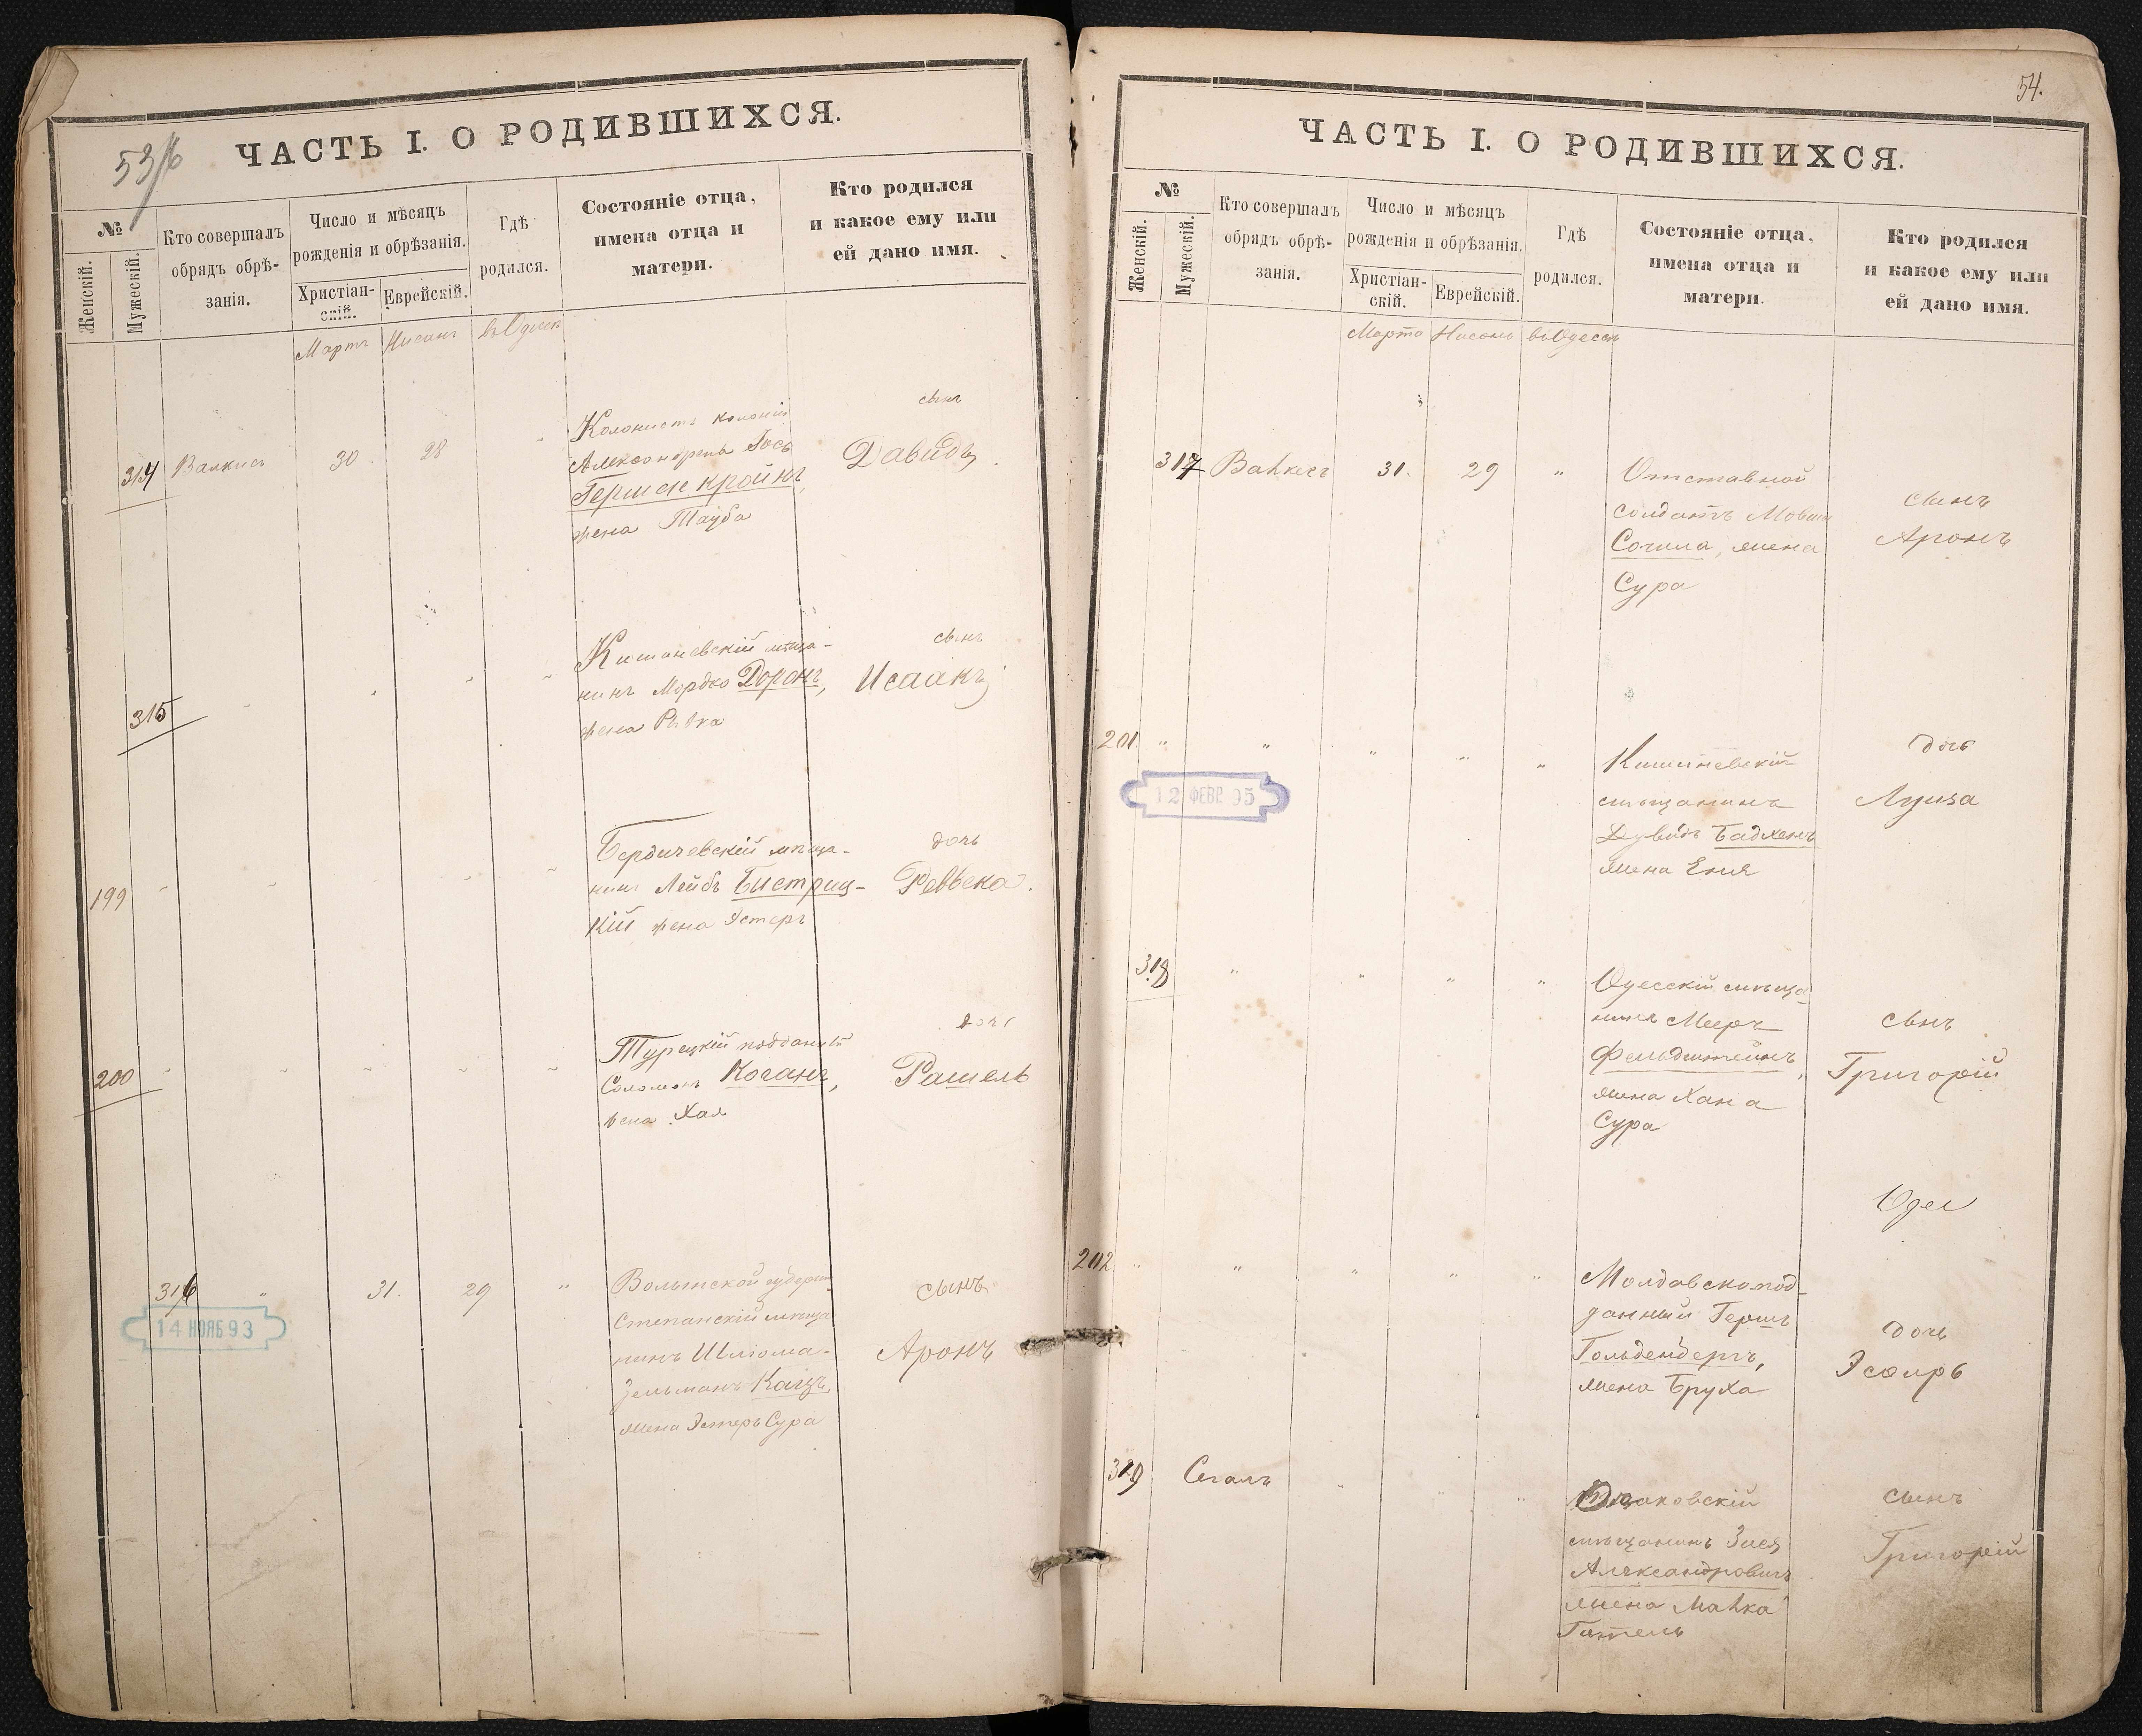 53/б
ЧАСТЬ I. О РОДИВШИХСЯ.
№
Женскій.
Мужескій.
Кто совершалъ
обрядъ обрѣ-
занія.
Число и мѣсяцъ
рожденія и обрѣзанія.
Христіан-
скій.
Еврейскій.
Гдѣ
родился.
Состояніе отца,
имена отца и
матери.
Кто родился
и какое ему или
ей дано имя.
Мартъ Нисанъ
314 30 28
Колонистъ колоніи
жена Тауба
сынъ
Давидъ
315
Кишиневскій мѣща-
нинъ Мордко Доронъ,
жена Ривка
сынъ
Исаакъ
199
Бердичевскій мѣща-
нинъ Лейбъ Бистриц-
кій жена Эстеръ
дочь
Ревьека.
200
Турецкій подданый
Соломонъ Коганъ,
жена Хая
дочь
Рашель
316 " 31. 29 "
14 НОЯБ 93
Волынской
Степанскій мѣща
нинъ Шліома-
Зельманъ Кацъ,
жена Эстеръ Сура
сынъ
Аронъ
54.
ЧАСТЬ I. О РОДИВШИХСЯ.
№
Женскій.
Мужескій.
Кто совершалъ
обрядъ обрѣ-
занія.
Число и мѣсяцъ
рожденія и обрѣзанія.
Христіан-
скій.
Еврейскій.
Гдѣ
родился.
Состояніе отца,
имена отца и
матери.
Кто родился
и какое ему или
ей дано имя.
Марта Нисанъ
317 31. 29 "
Отставной
солдатъ Мовша
жена
Сура
сынъ
Аронъ
201. " " " " "
12 ФЕВР 95
Кишиневскій
мѣщанинъ
Бадхенъ
жена Еня
дочь
Луиза
318 " " " "
Одесскій мѣща-
нинъ Мееръ
Фельдштейнъ,
жена Хана
Сура
сынъ
Григорій
202 " " " " "
Молдавско под-
данный Гершъ
Гольденбергъ,
жена Бруха
дочь
Эсѳирь
319 Сегалъ
мѣщанинъ
Александровичъ
жена
Гитель
сынъ
Григорій